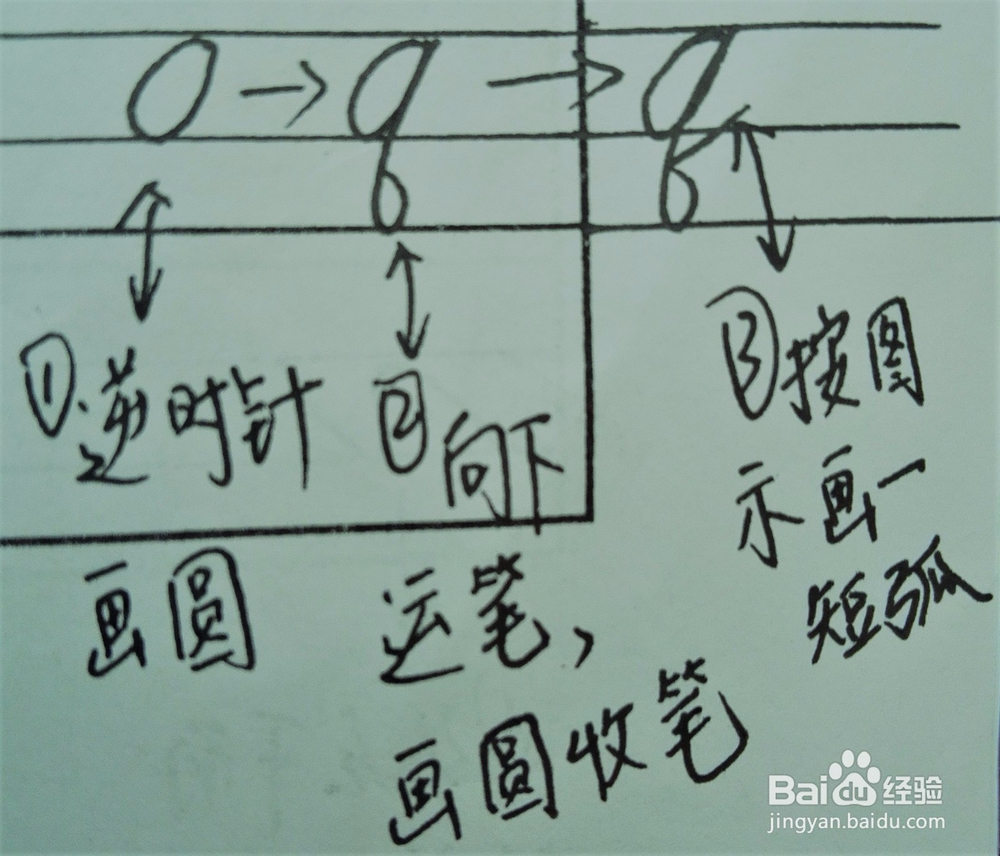 ①逆时针
画圆
②向下
运笔，
画圆收笔
③按图
示画一
短弧
Baidu经验
jingyan.baidu.com